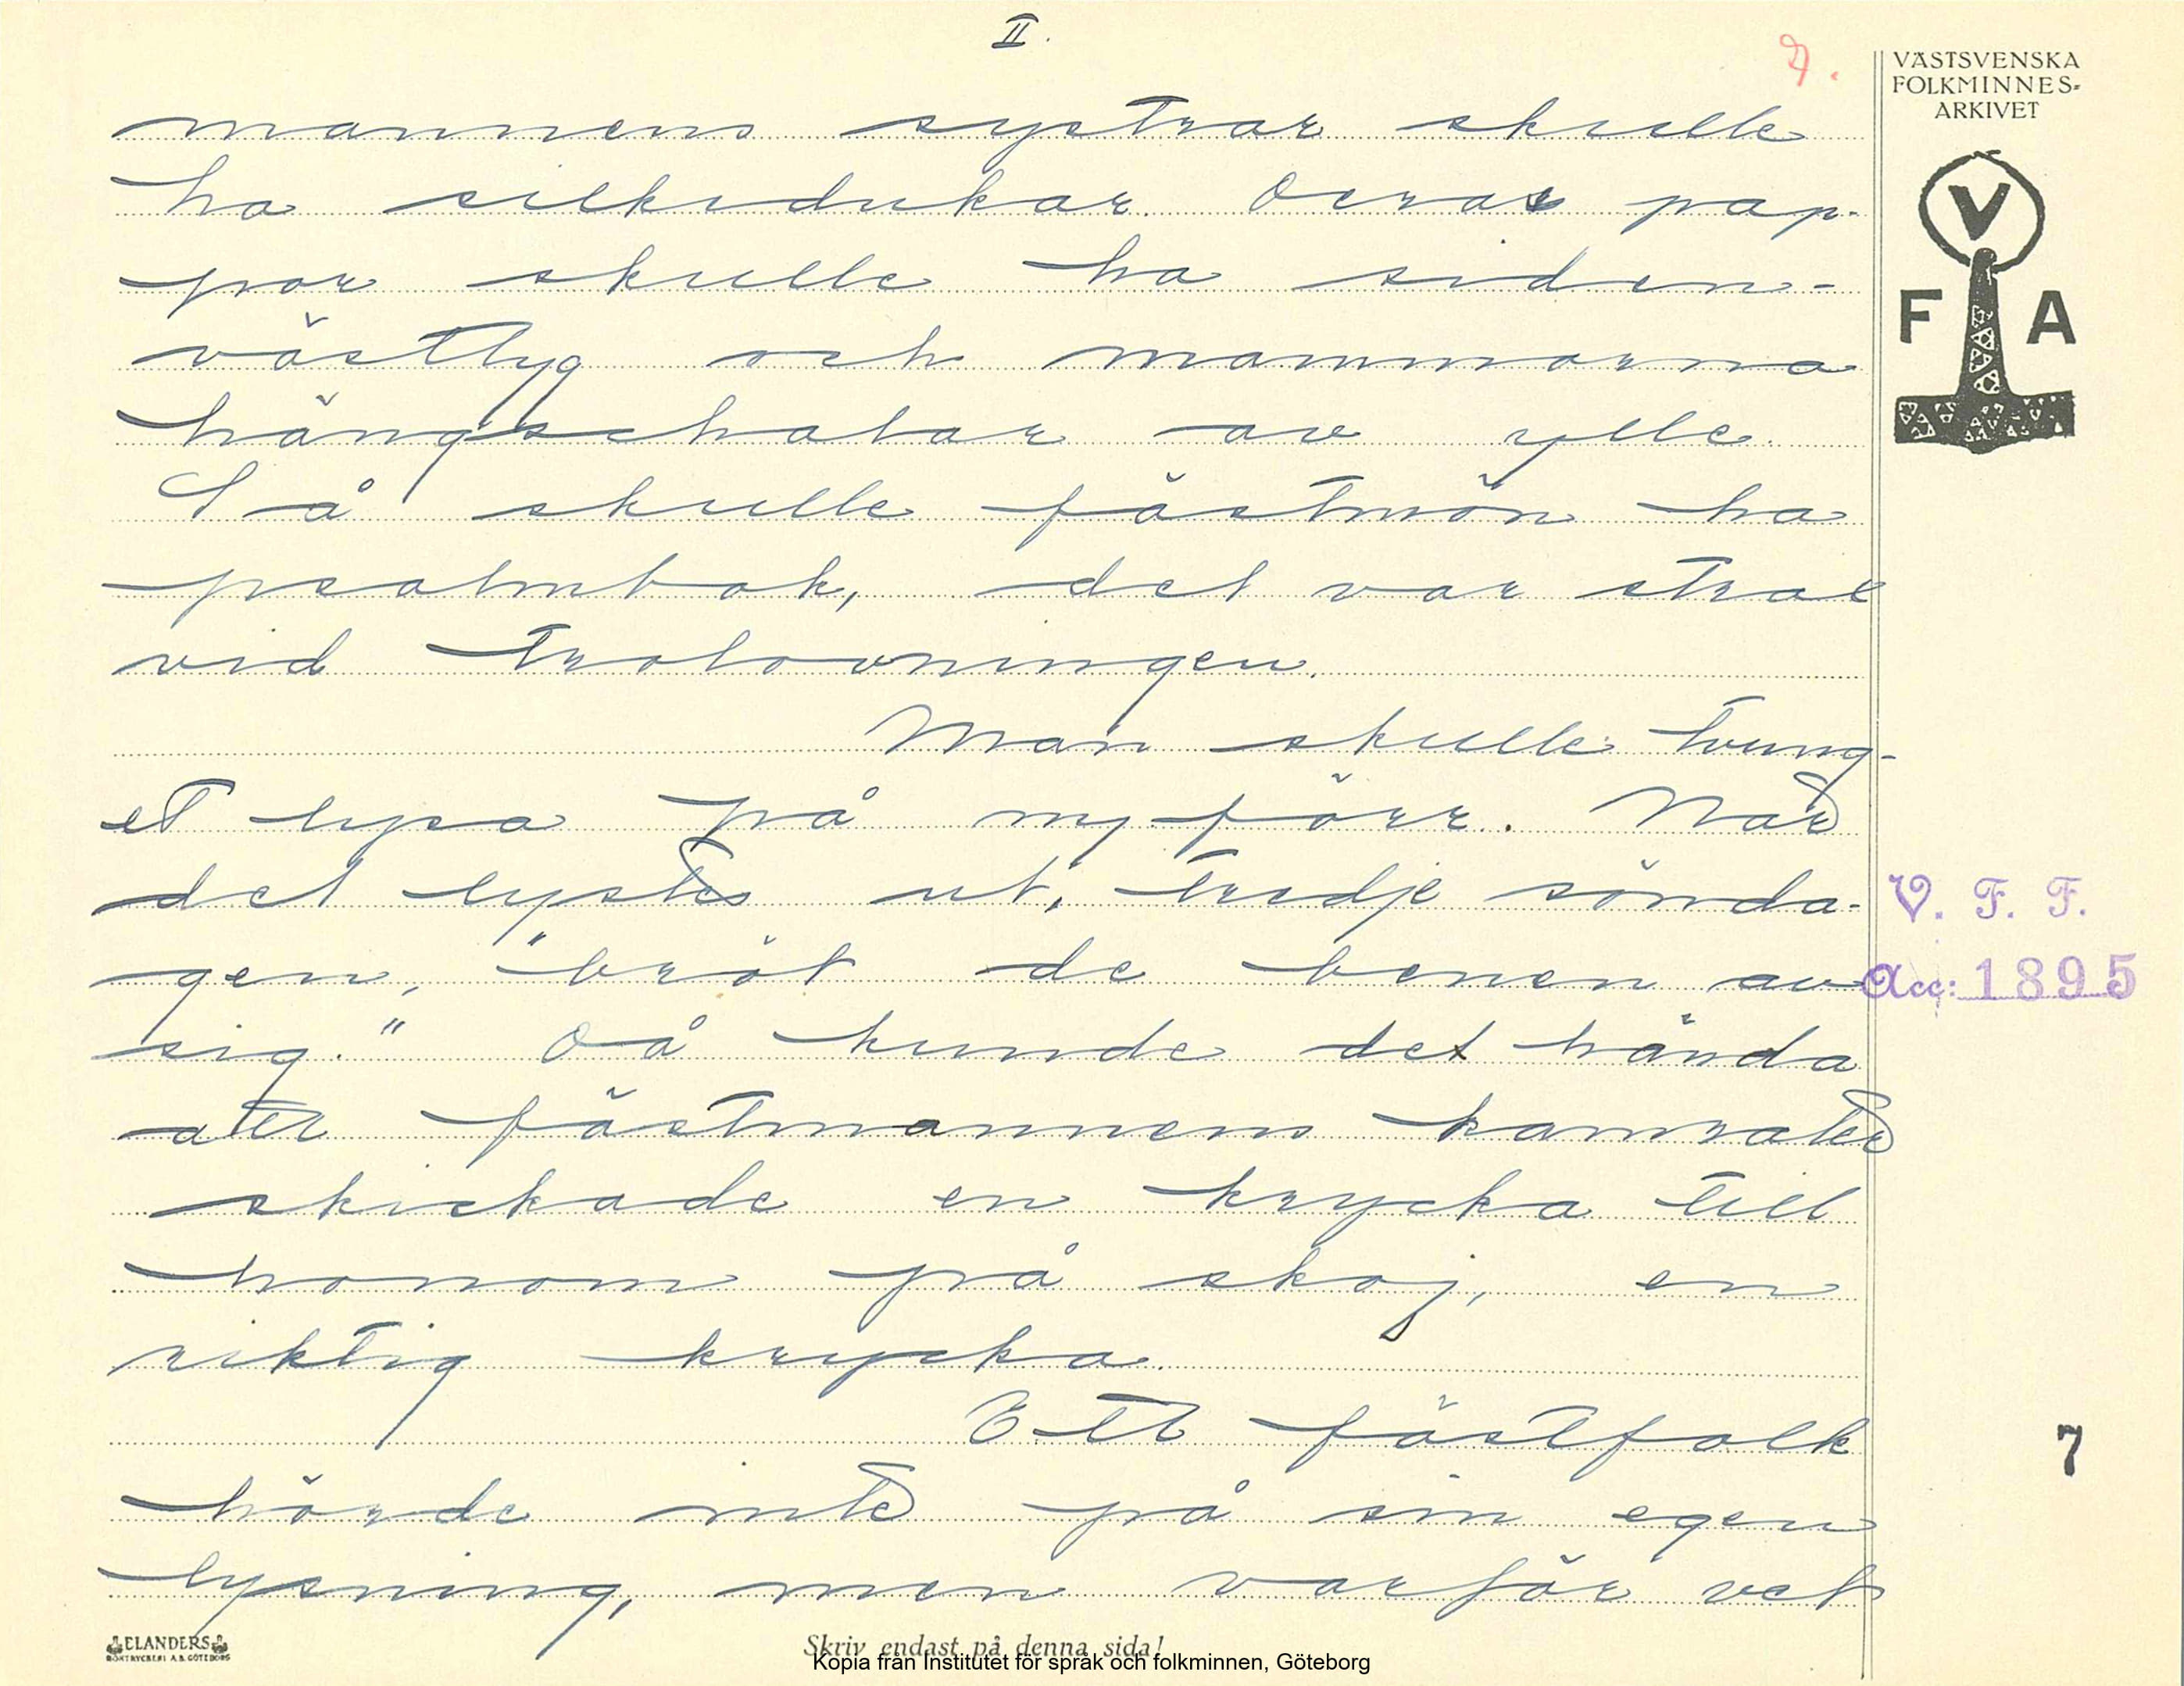 II.
7.
VÄSTSVENSKA
FOLKMINNES-
ARKIVET
V
F A
mannens systrar skulle
ha silkedukar. Deras pap-
por skulle ha siden-
västtyg och mammorna
hängschalar av ylle.
Så skulle fästmön ha
psalmbok, det var strax
vid trolovningen.
Man skulle tvung-
et lysa på ny-förr. När
det lystes ut, tredje sönda-
gen, "bröt de benen av
sig." Då kunde det hända
att fästmannens kamrater
skickade en krycka till
honom på skoj, en
riktig krycka.
Ett fästfolk
hörde inte på sin egen
lysning, men varför vet
V. F. F.
Acc: 1895
7
ELANDERS
BOKTRYCKERI A.B. GÖTEBORG
Skriv endast på denna sida!
Kopia från Institutet för språk och folkminnen, Göteborg